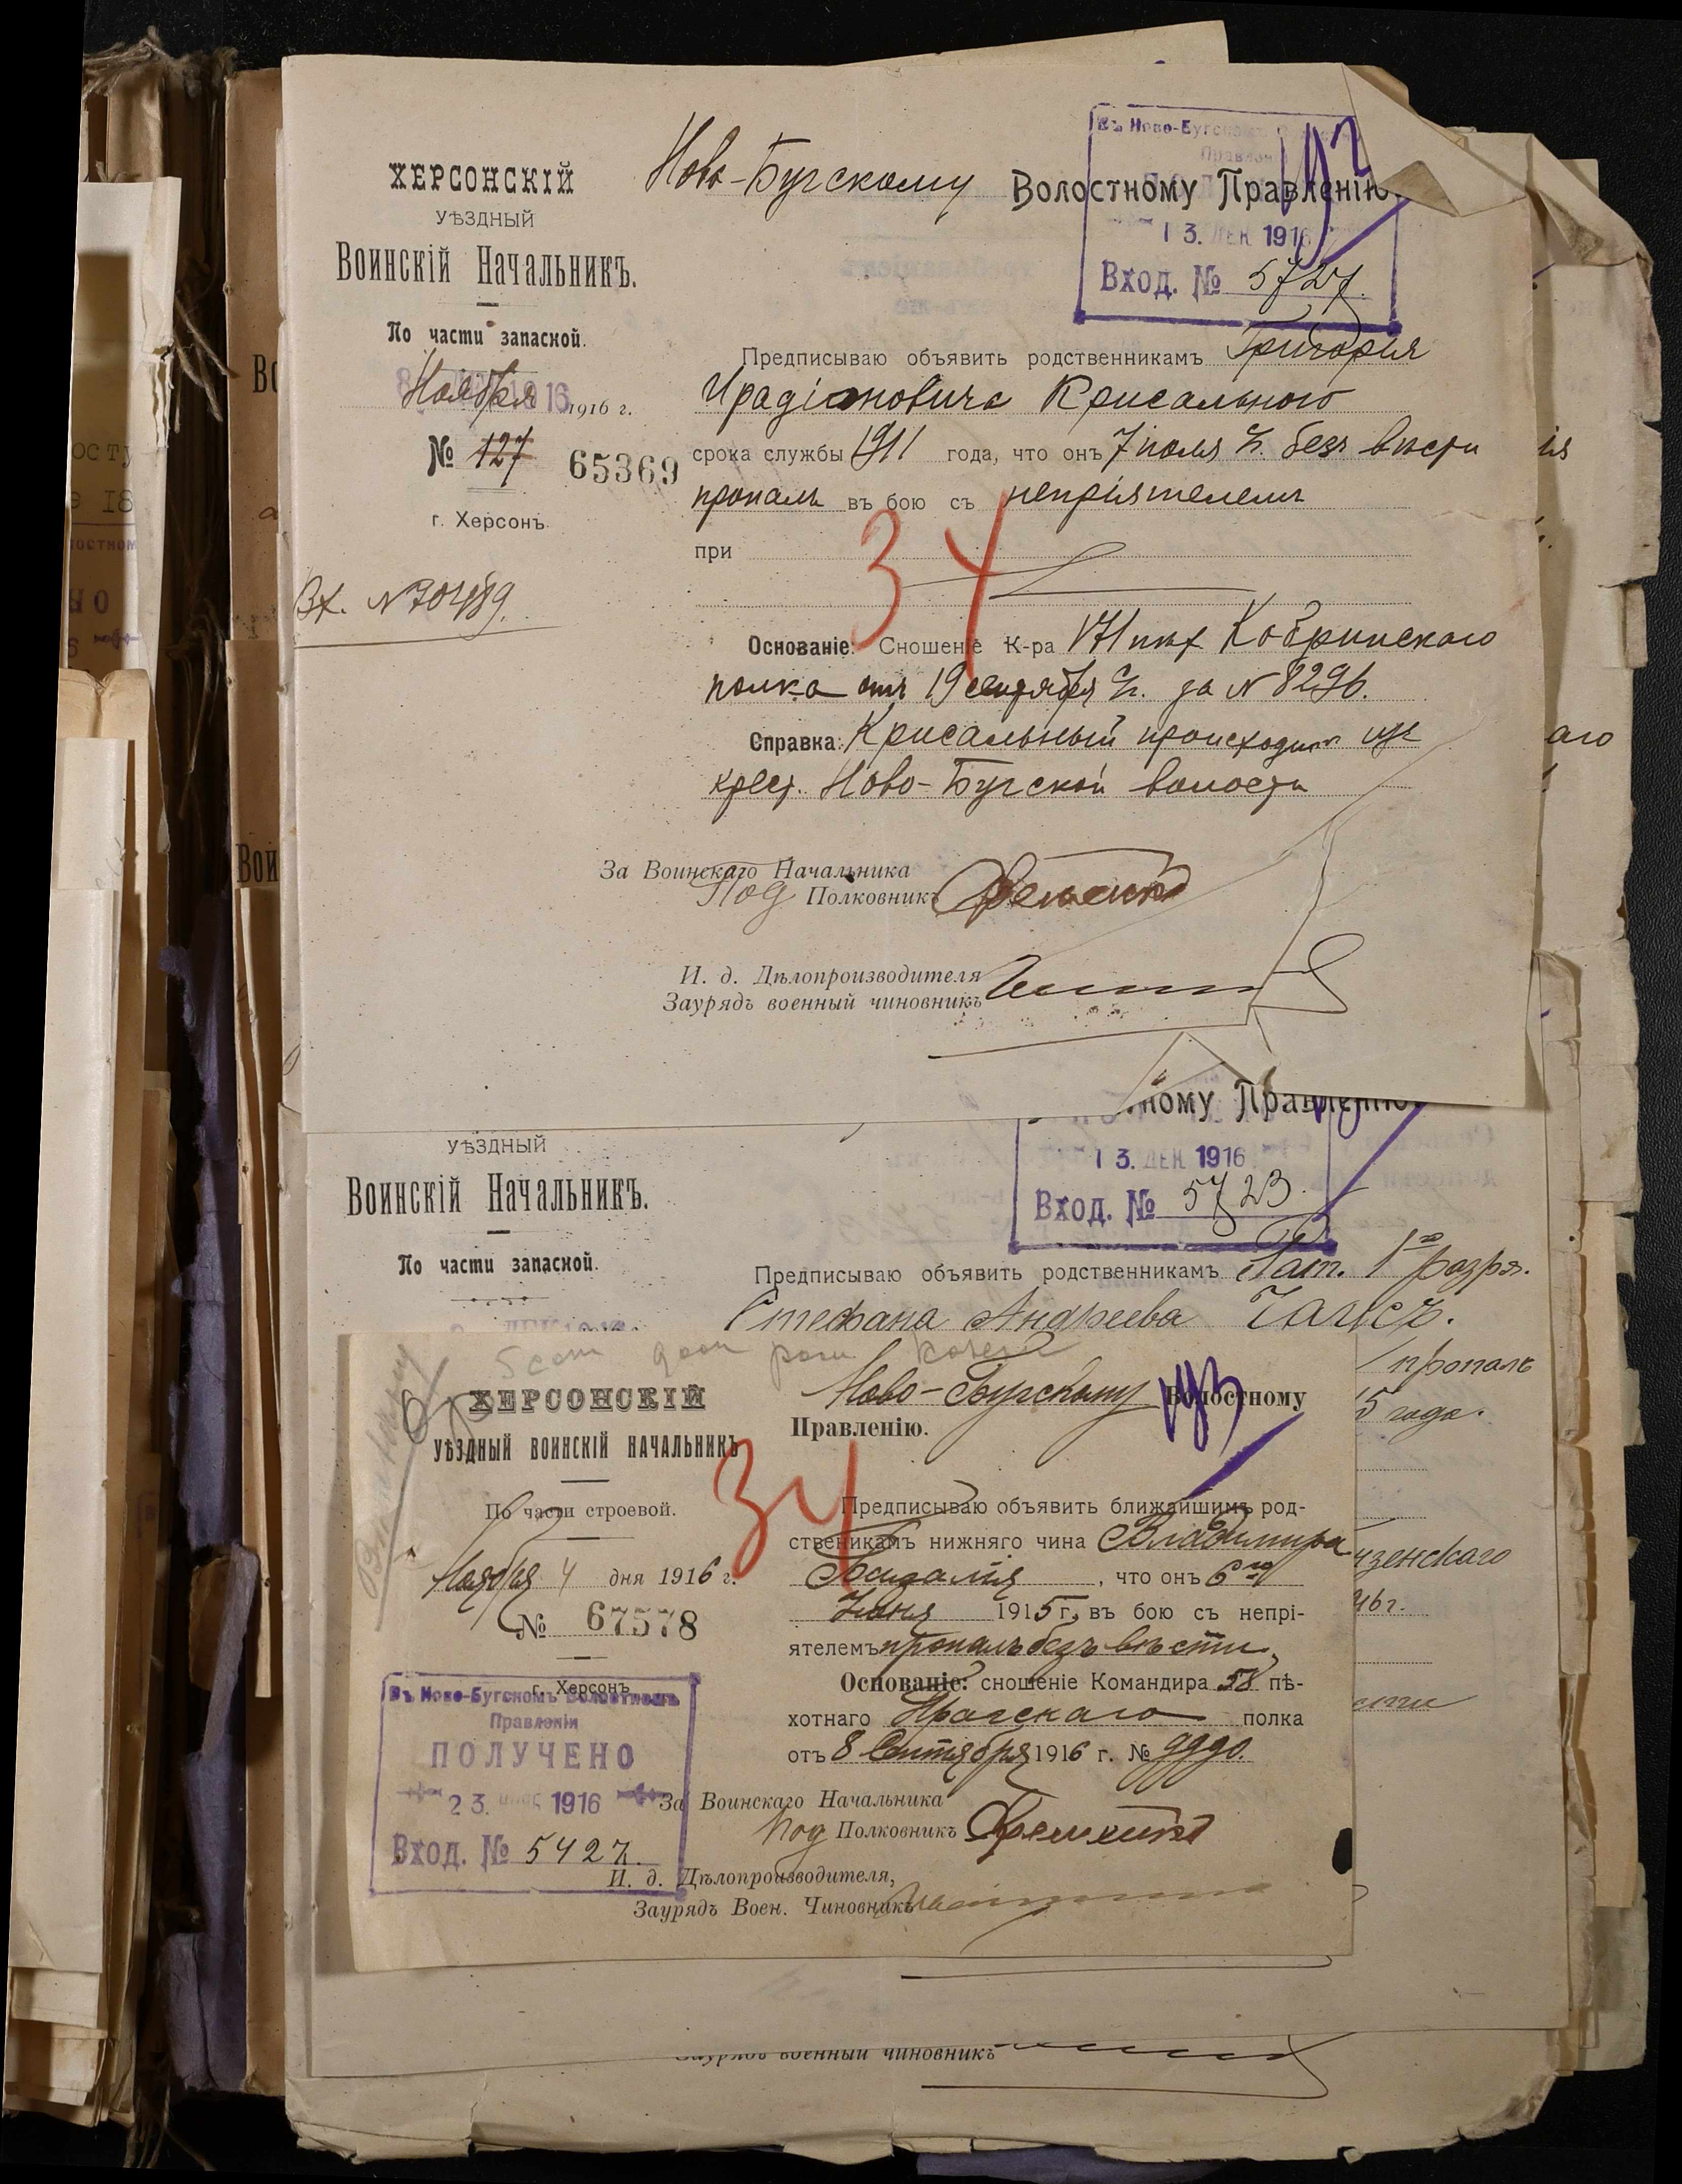 ХЕРСОНСКІЙ
УѢЗДНЫЙ
ВОИНСКІЙ НАЧАЛЬНИКЪ.
По части запасной.
Ноября 1916 г.
№ 127 65369
г. Херсонъ.
Вх. № 70489.
Ново-Бугскому Волостному Правленію
Въ Ново-Бугскомъ
Правленіи
13. ДЕК. 1916
Вход. № 5727.
Предписываю объявить родственникамъ Григорія
Ирадіоновича Крисального
срока службы 1911 года, что онъ 7 іюля с.г. безъ вѣсти
пропалъ въ бою съ непріятелемъ
при
34
Основаніе: Сношеніе К-ра 171 пѣх. Кобринскаго
полка отъ 19 сентября с.г. за № 8296.
Справка: Крисальный происходитъ изъ
крест. Ново-Бугской волости
За Воинскаго Начальника
Под Полковникъ
И. д. Дѣлопроизводителя
Заурядъ военный чиновникъ
ному Правленію
УѢЗДНЫЙ
ВОИНСКІЙ НАЧАЛЬНИКЪ.
По части запасной.
13. ДЕК. 1916
Вход. № 5723.
Предписываю объявить родственникамъ Рат. 1го разря.
Стефана Андреева
пропалъ
15 года.
аго
ХЕРСОНСКІЙ
УѢЗДНЫЙ ВОИНСКІЙ НАЧАЛЬНИКЪ
По части строевой.
Ноября 4 дня 1916 г.
№ 67578
г. Херсонъ
Въ Ново-Бугскомъ Волостномъ
Правленіи
ПОЛУЧЕНО
23. 1916
Вход. № 5427.
Ново-Бугскому Волостному
Правленію.
34
Предписываю объявить ближайшимъ род-
ственикамъ нижняго чина Владимира
, что онъ 6го
Іюня 1915 г. въ бою съ непрі-
ятелемъ пропалъ безъ вѣсти.
Основаніе: сношеніе Командира 58 пѣ-
хотнаго Прагскаго полка
отъ 8 Сентября 1916 г. № 9990.
За Воинскаго Начальника
Под Полковникъ
И. д. Дѣлопроизводителя,
Заурядъ Воен. Чиновникъ
Заурядъ военный чиновникъ